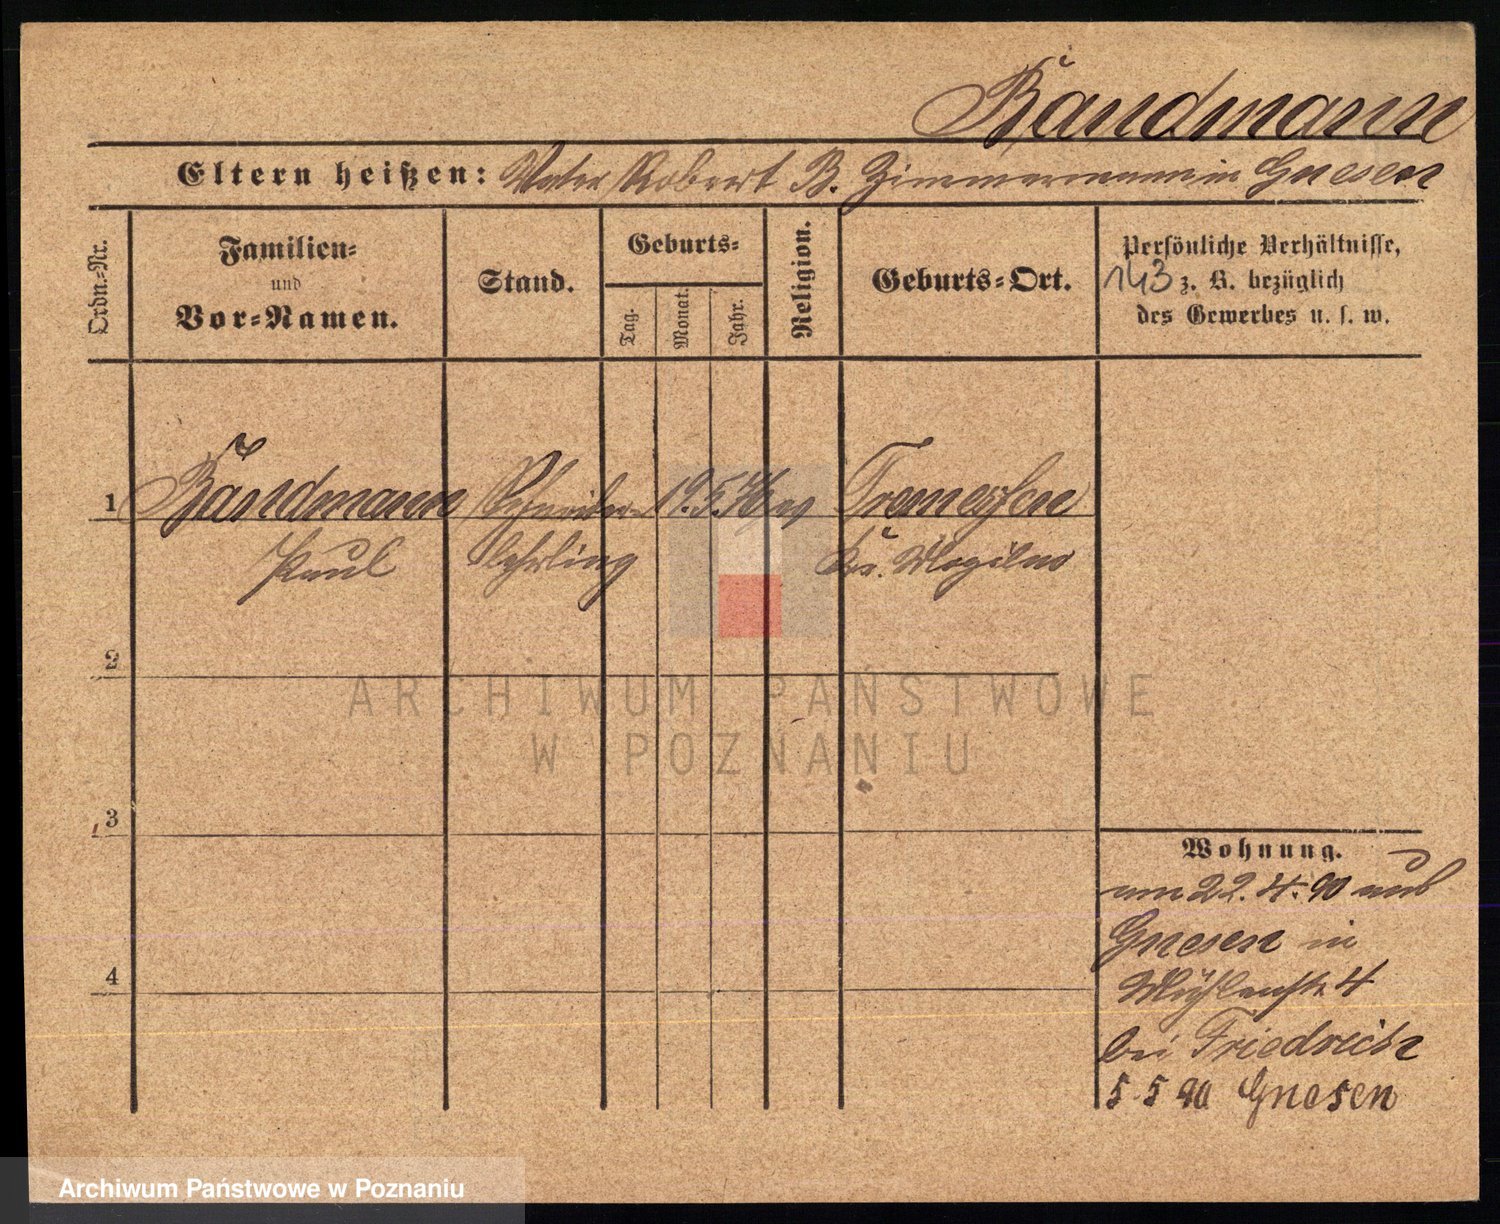 Bandmann
Eltern heißen: Vater Robert B. Zimmermann in Gnesen
Ordn.-Nr.
Familien-
und
Vor-Namen.
Stand.
Geburts-
Tag.
Monat.
Jahr.
Religion.
Geburts-Ort.
Persönliche Verhältnisse,
143 z. B. bezüglich
des Gewerbes u. s. w.
1 Bandmann Schneider- 19. 5. 76 ev Tremessen
Paul lehrling Krs. Mogilno
2
ARCHIWUM PAŃSTWOWE
W POZNANIU
3
Wohnung.
am 22. 4. 90 aus
Gnesen in
4
Mühlenstr 4
bei Friedrich
5 5 90 Gnesen
Archiwum Państwowe w Poznaniu